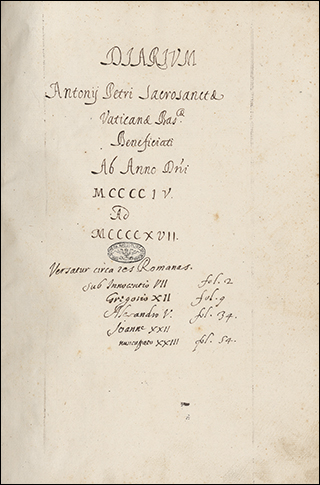 DIARIVM
Antonij Petri Sacrosanctæ
Vaticanæ Bas.
Beneficiati
Ab Anno Dñi
MCCCCIV.
Ad
MCCCCXVII.
Versatur circa res Romanas.
sub Innocentio VII fol. 2
Gregorio XII fol. 9
Alexandro V. fol. 34.
Joanne XXII
nuncupato XXIII fol. 54.